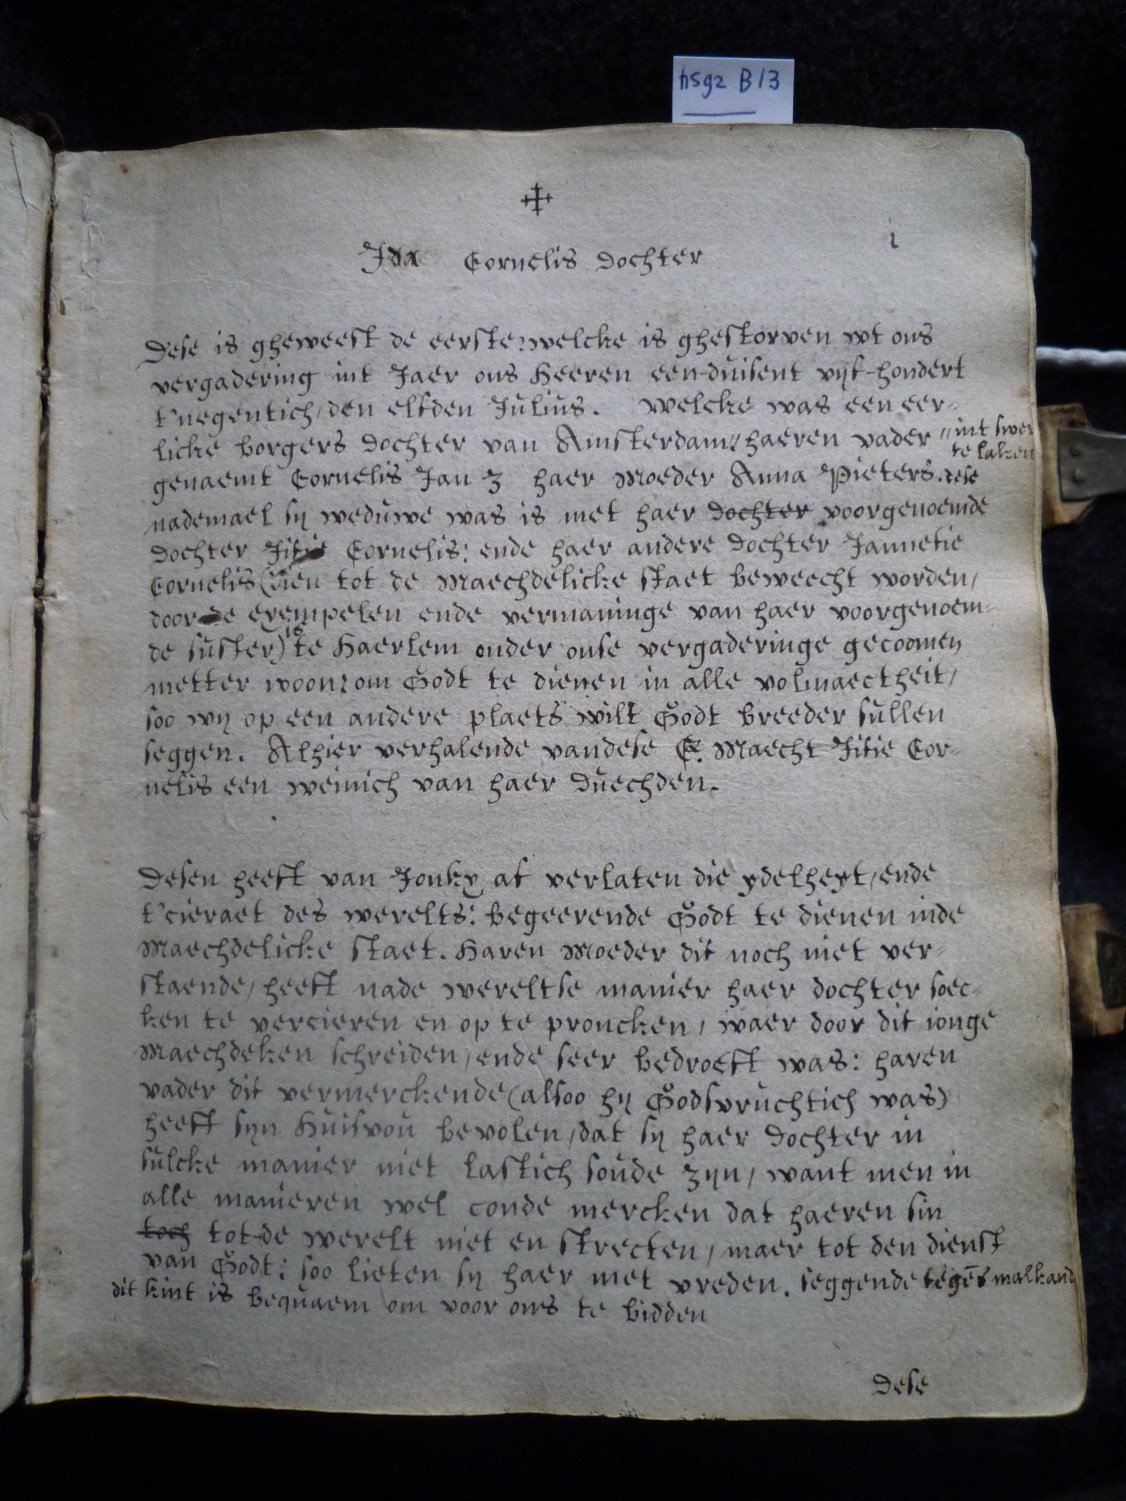 hsgz B13
i
Ida Cornelis dochter
Dese is gheweest de eerste, welcke is ghestorven wt ons
vergadering int Jaer ons Heeren een-duisent vijf-hondert
t'negentich, den elfden Julius. welcke was een eer-
licke borgers dochter van Amsterdam, haeren vader //int swer
te laken
genaemt Cornelis Jan Z haer Moeder Anna Pieters. dese
nademael sij weduwe was is met haer dochter voorgenoemde
dochter Jitie Cornelis: ende haer andere dochter Jannetie
Cornelis (dien tot de Maechdelicke staet beweecht worden,
door de exempelen ende vermaninge van haer voorgenoem-
de suster) is te Haerlem onder onse vergaderinge gecoomen
metter woon, om Godt te dienen in alle volmaectheit,
soo wij op een andere plaets wilt Godt breeder sullen
seggen. Alhier verhalende van dese E. Maecht Jitie Cor-
nelis een weinich van haer duechden.
Desen heeft van Jonkx af verlaten die ydelheyt, ende
t'cieraet des werelts: begeerende Godt te dienen inde
Maechdelicke staet. Haren Moeder dit noch niet ver-
staende, heeft nade wereltse manier haer dochter soec-
ken te vercieren en op te proncken, waer door dit ionge
Maechdeken schreiden, ende seer bedroeft was: haren
vader dit vermerckende (alsoo hij Godsvruchtich was)
heeft sijn Huisvou bevolen, dat sij haer dochter in
sulcke manier niet lastich soude zijn, want men in
alle manieren wel conde mercken dat haeren sin
toch tot de werelt niet en strecten, maer tot den dienst
van Godt: soo lieten sij haer met vreden. seggende tegēs malkand
dit kint is bequaem om voor ons te bidden
Dese